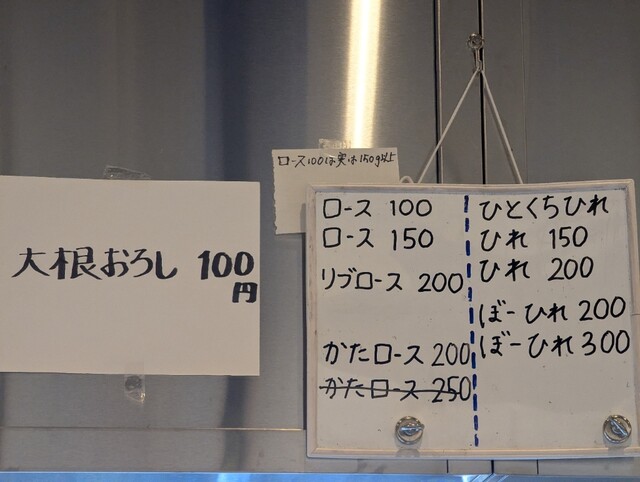 大根おろし 100
円
ロース100は実は150g以上
ロース 100
ロース 150
リブロース 200
かたロース 200
かたロース 250
ひとくちひれ
ひれ 150
ひれ 200
ぼーひれ 200
ぼーひれ 300